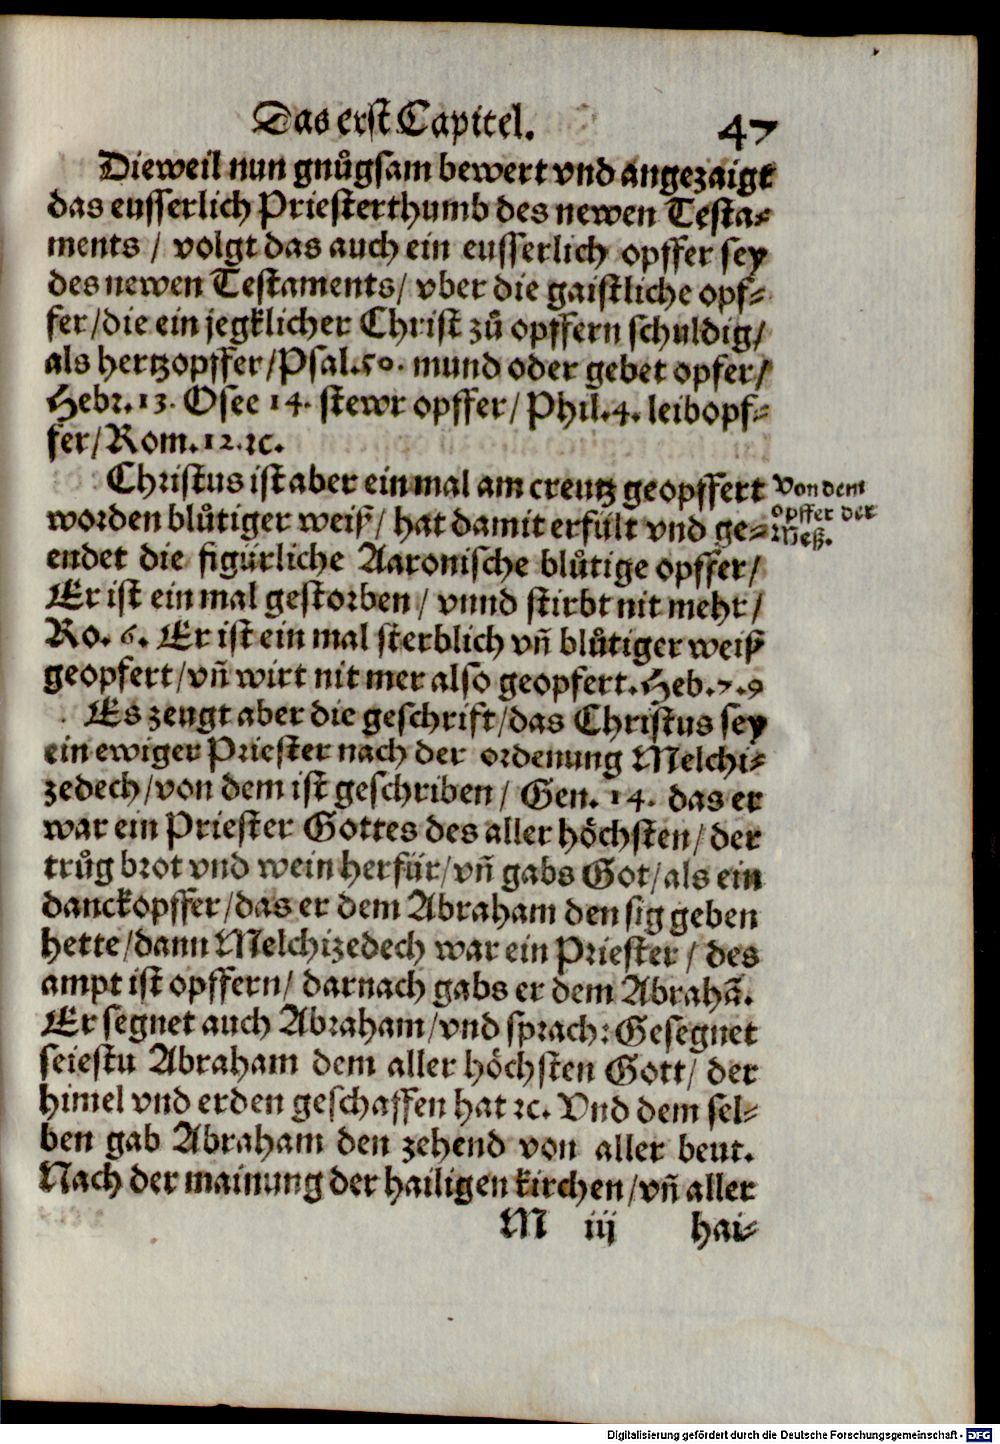 Das erst Capitel. 47
Dieweil nun gnůgsam bewert vnd angezaigt
das eusserlich Priesterthumb des newen Testa⸗
ments / volgt das auch ein eusserlich opffer sey
des newen Testaments/ vber die gaistliche opf⸗
fer/die ein jegklicher Christ zů opffern schuldig/
als hertzopffer/Psal.50. mund oder gebet opfer/
Hebr.13. Osee 14. stewr opffer/ Phil.4. leibopf⸗
fer/Rom.12.ꝛc.
Christus ist aber ein mal am creutz geopffert
worden blůtiger weiß/ hat damit erfült vnd ge⸗
endet die figürliche Aaronische blůtige opffer/
Er ist ein mal gestorben/ vnnd stirbt nit mehr/
Ro. 6. Er ist ein mal sterblich vñ blůtiger weiß
geopfert/vñ wirt nit mer also geopfert. Heb.7.9
Von dem
opffer der
Meß.
Es zeugt aber die geschrift/das Christus sey
ein ewiger Priester nach der ordenung Melchi⸗
zedech/von dem ist geschriben/ Gen. 14. das er
war ein Priester Gottes des aller höchsten/ der
trůg brot vnd wein herfür/vñ gabs Got/als ein
danckopffer/das er dem Abraham den sig geben
hette/dann Melchizedech war ein Priester/ des
ampt ist opffern/ darnach gabs er dem Abrahã.
Er segnet auch Abraham/vnd sprach: Gesegnet
seiestu Abraham dem aller höchsten Gott/ der
himel vnd erden geschaffen hat ꝛc. Vnd dem sel⸗
ben gab Abraham den zehend von aller beut.
Nach der mainung der hailigen kirchen/vñ aller
M iij hai⸗
Digitalisierung gefördert durch die Deutsche Forschungsgemeinschaft - DFG